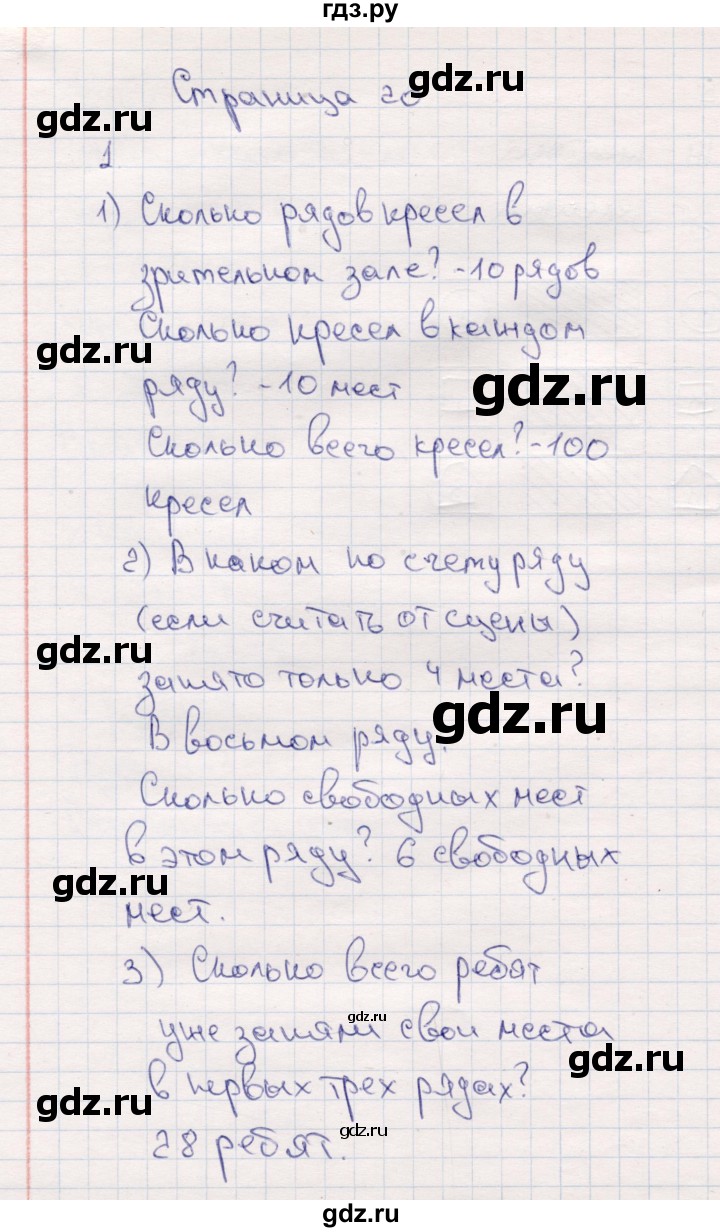 гдз.ру
Страница 20
gdz.ru
gdz.ru
1
1) Сколько рядов кресел в
зрительном зале? - 10 рядов
Сколько кресел в каждом
gdz.ru
ряду? - 10 мест
gdz.ru
Сколько всего кресел? - 100
кресел
2) В каком по счету ряду
(если считать от сцены)
gdz.ru
занято только 4 места?
gdz.ru
В восьмом ряду.
Сколько свободных мест
в этом ряду? 6 свободных
gdz.ru
мест.
3) Сколько всего ребят
gdz.ru
уже заняли свои места
gdz.ru
в первых трех рядах?
gdz.ru
gdz.ru
28 ребят.
gdz.ru